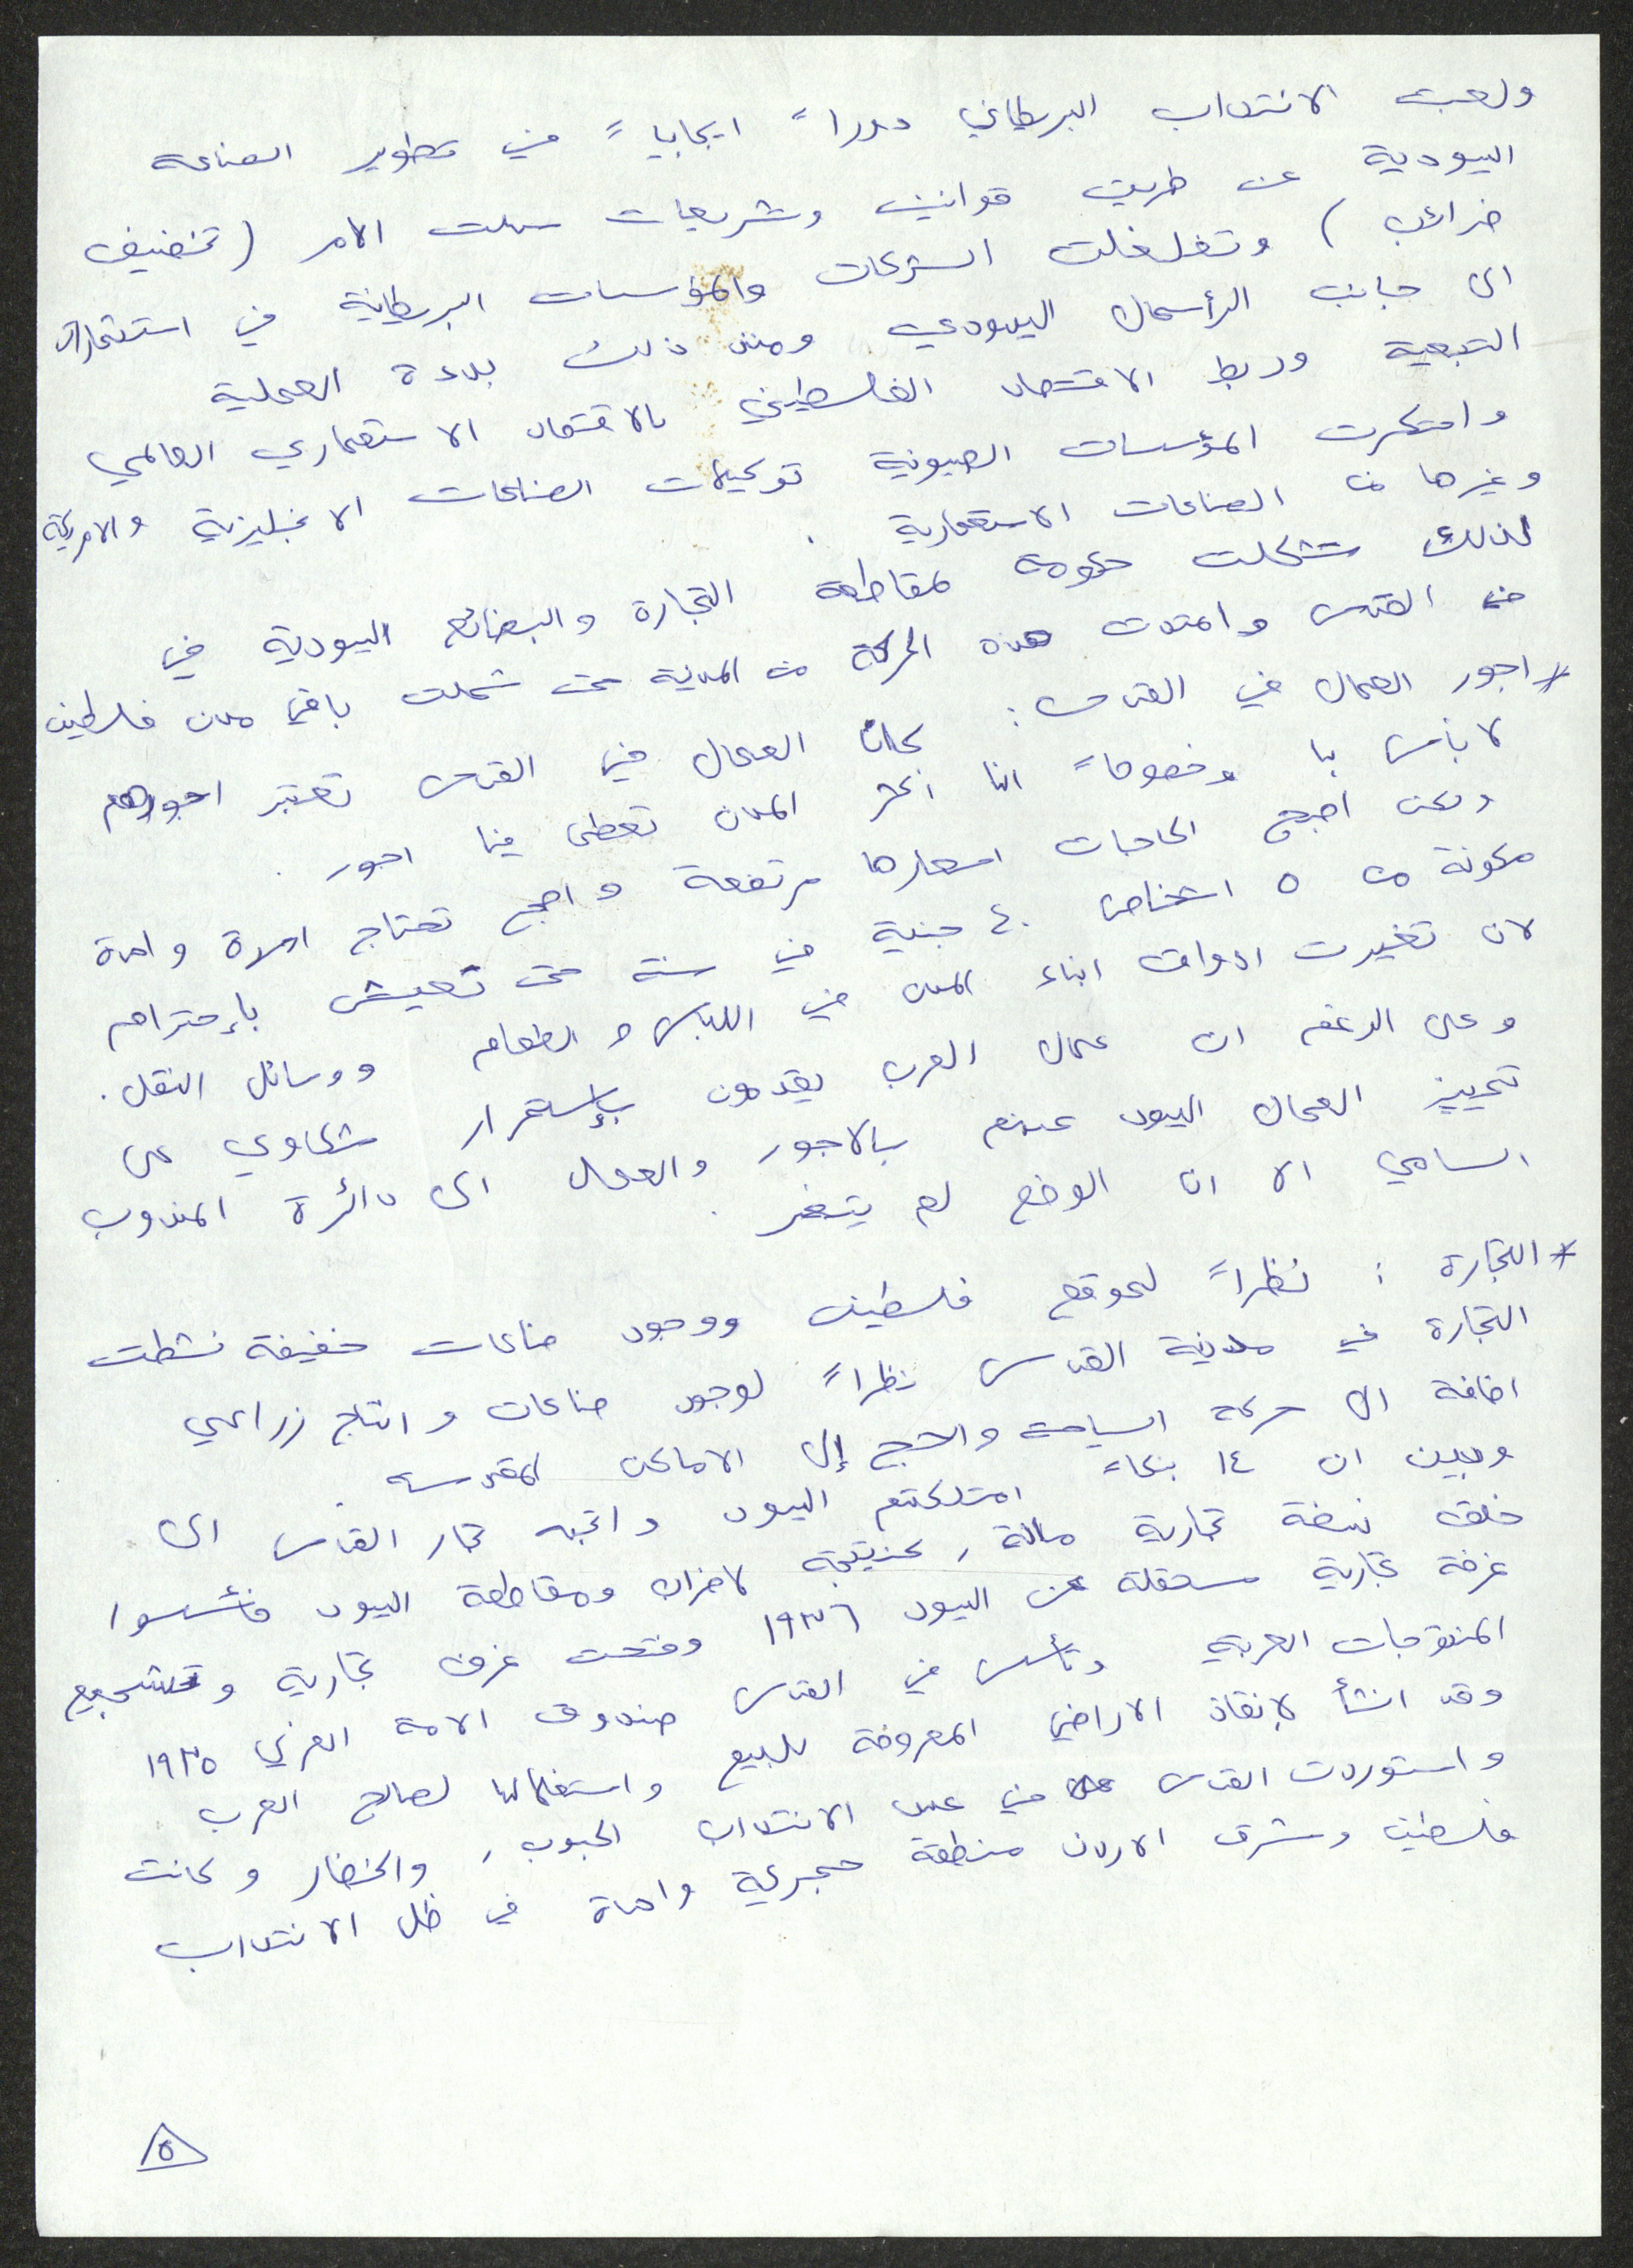 ولعب الانتداب البريطاني دوراً ايجابياً في تطوير الصناعة
اليهودية عن طريق قوانين وتشريعات سهلت الامر (تخفيف
ضرائب) وتغلغلت الشركات والمؤسسات البريطانية في استثمارات
الى جانب الرأسمال اليهودي ومنذ ذلك بدءة العملية
التبعية وربط الاقتصاد الفلسطيني بالاقتصاد الاستعماري العالمي
واحتكرت المؤسسات الصهيونية توكيلات الصناعات الانجليزية والامريكية
وغيرها من الصناعات الاستعمارية .
لذلك شكلت حكومة لمقاطعة التجارة والبضائع اليهودية في
القدس وامتدت هذه الحركة من المدينة حتى شملت باقي مدن فلسطين
* اجور العمال في القدس : كان العمال في القدس تعتبر اجورهم
لا بأس بها وخصوصاً انها اكثر المدن تعطى فيها اجور .
ولكن اصبح الحاجات اسعارها مرتفعة واصبح تحتاج اسرة واحدة
مكونة من ٥ اشخاص ٤٠ جنية في سنة حتى تعيش بإحترام
لان تغيرت اذواق ابناء المدن في اللباس والطعام ووسائل النقل .
وعلى الرغم ان عمال العرب يقدمون بإستمرار شكاوي على
تمييز العمال اليهود عنهم بالاجور والعمل الى دائرة المندوب
السامي الا ان الوضع لم يتغير .
* التجارة : نظراً لموقع فلسطين ووجود صناعات خفيفة نشطت
التجارة في مدينة القدس نظراً لوجود صناعات وانتاج زراعي
اضافة الى حركة السياحة والحج إلى الاماكن المقدسه .
وبين ان ١٤ بنكاً امتلكتهم اليهود واتجه تجار القدس الى
خلق نهضة تجارية مالية , كنتيجة لاضراب ومقاطعة اليهود فأسسوا
غرفة تجارية مستقلة عن اليهود ١٩٣٦ وفتحت غرف تجارية وتشجيع
المنتوجات العربية وتأسس في القدس صندوق الامة العربي ١٩٣٥
وقد انشأ لإنقاذ الاراضي المعروضة للبيع واستغلالها لصالح العرب
واستوردت القدس في عهد الانتداب الحبوب , والخضار وكانت
فلسطين وشرق الاردن منطقة جمركية واحدة في ظل الانتداب
٥